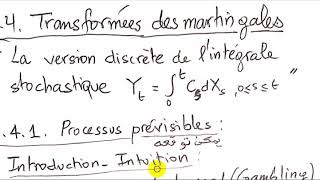 .4. Transformées des martingales
"La version discrète de l'intégrale
stochastique Y_t = ∫_0^t C_s dX_s, 0≤s≤t "
.4.1. Processus prévisibles :
يمكن توقعه
Introduction - Intuition :
(Gambling